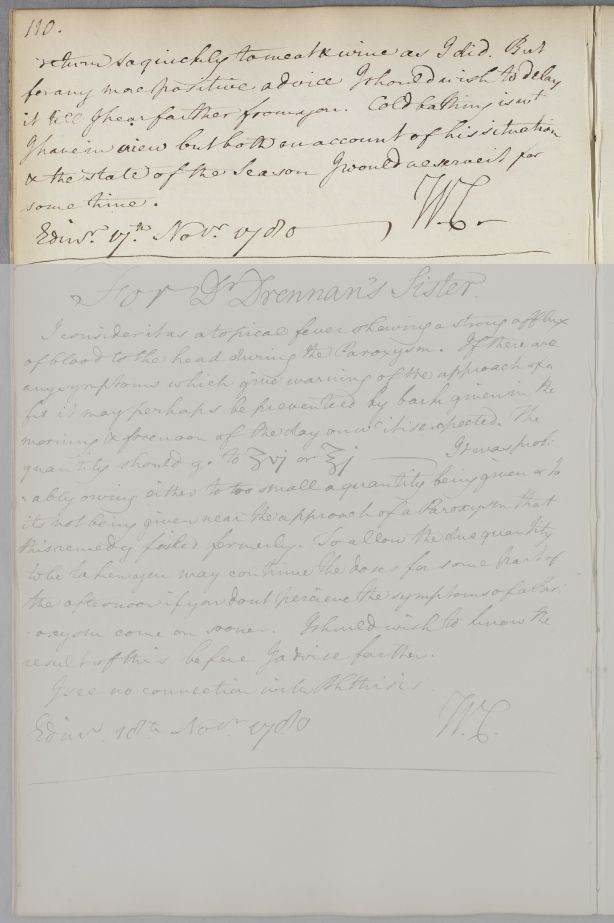 110.
return so quickly to meat & wine as I did. But
for any more positive advice I should wish to delay
it till I hear farther from you. Cold bathing is wt
I have in view but both on account of his situation
& the state of the Season I would reserve it for
some time.
Edinr. 17th Novr. 1780 W.C.
For Dr Drennan's Sister.
I consider it as a topical fever shewing a strong afflux
of blood to the head during the Paroxysm. If there are
any symptoms which give warning of the approach of a
fit it may perhaps be prevented by bark given in the
morning & forenoon of the day on wc it is expected. The
quantity should go to ʒvj or ℥j It was prob:
:ably owing either to too small a quantity being given or to
its not being given near the approach of a Paroxysm that
this remedy failed formerly. To allow the due quantity
to be taken you may continue the doses for some part of
the afternoon if you dont perceive the symptoms of a Par:
:oxysm come on sooner. I should wish to know the
result of this before I advise farther.
I see no connection with Phthisis.
Edinr. 18th Novr 1780 W.C.